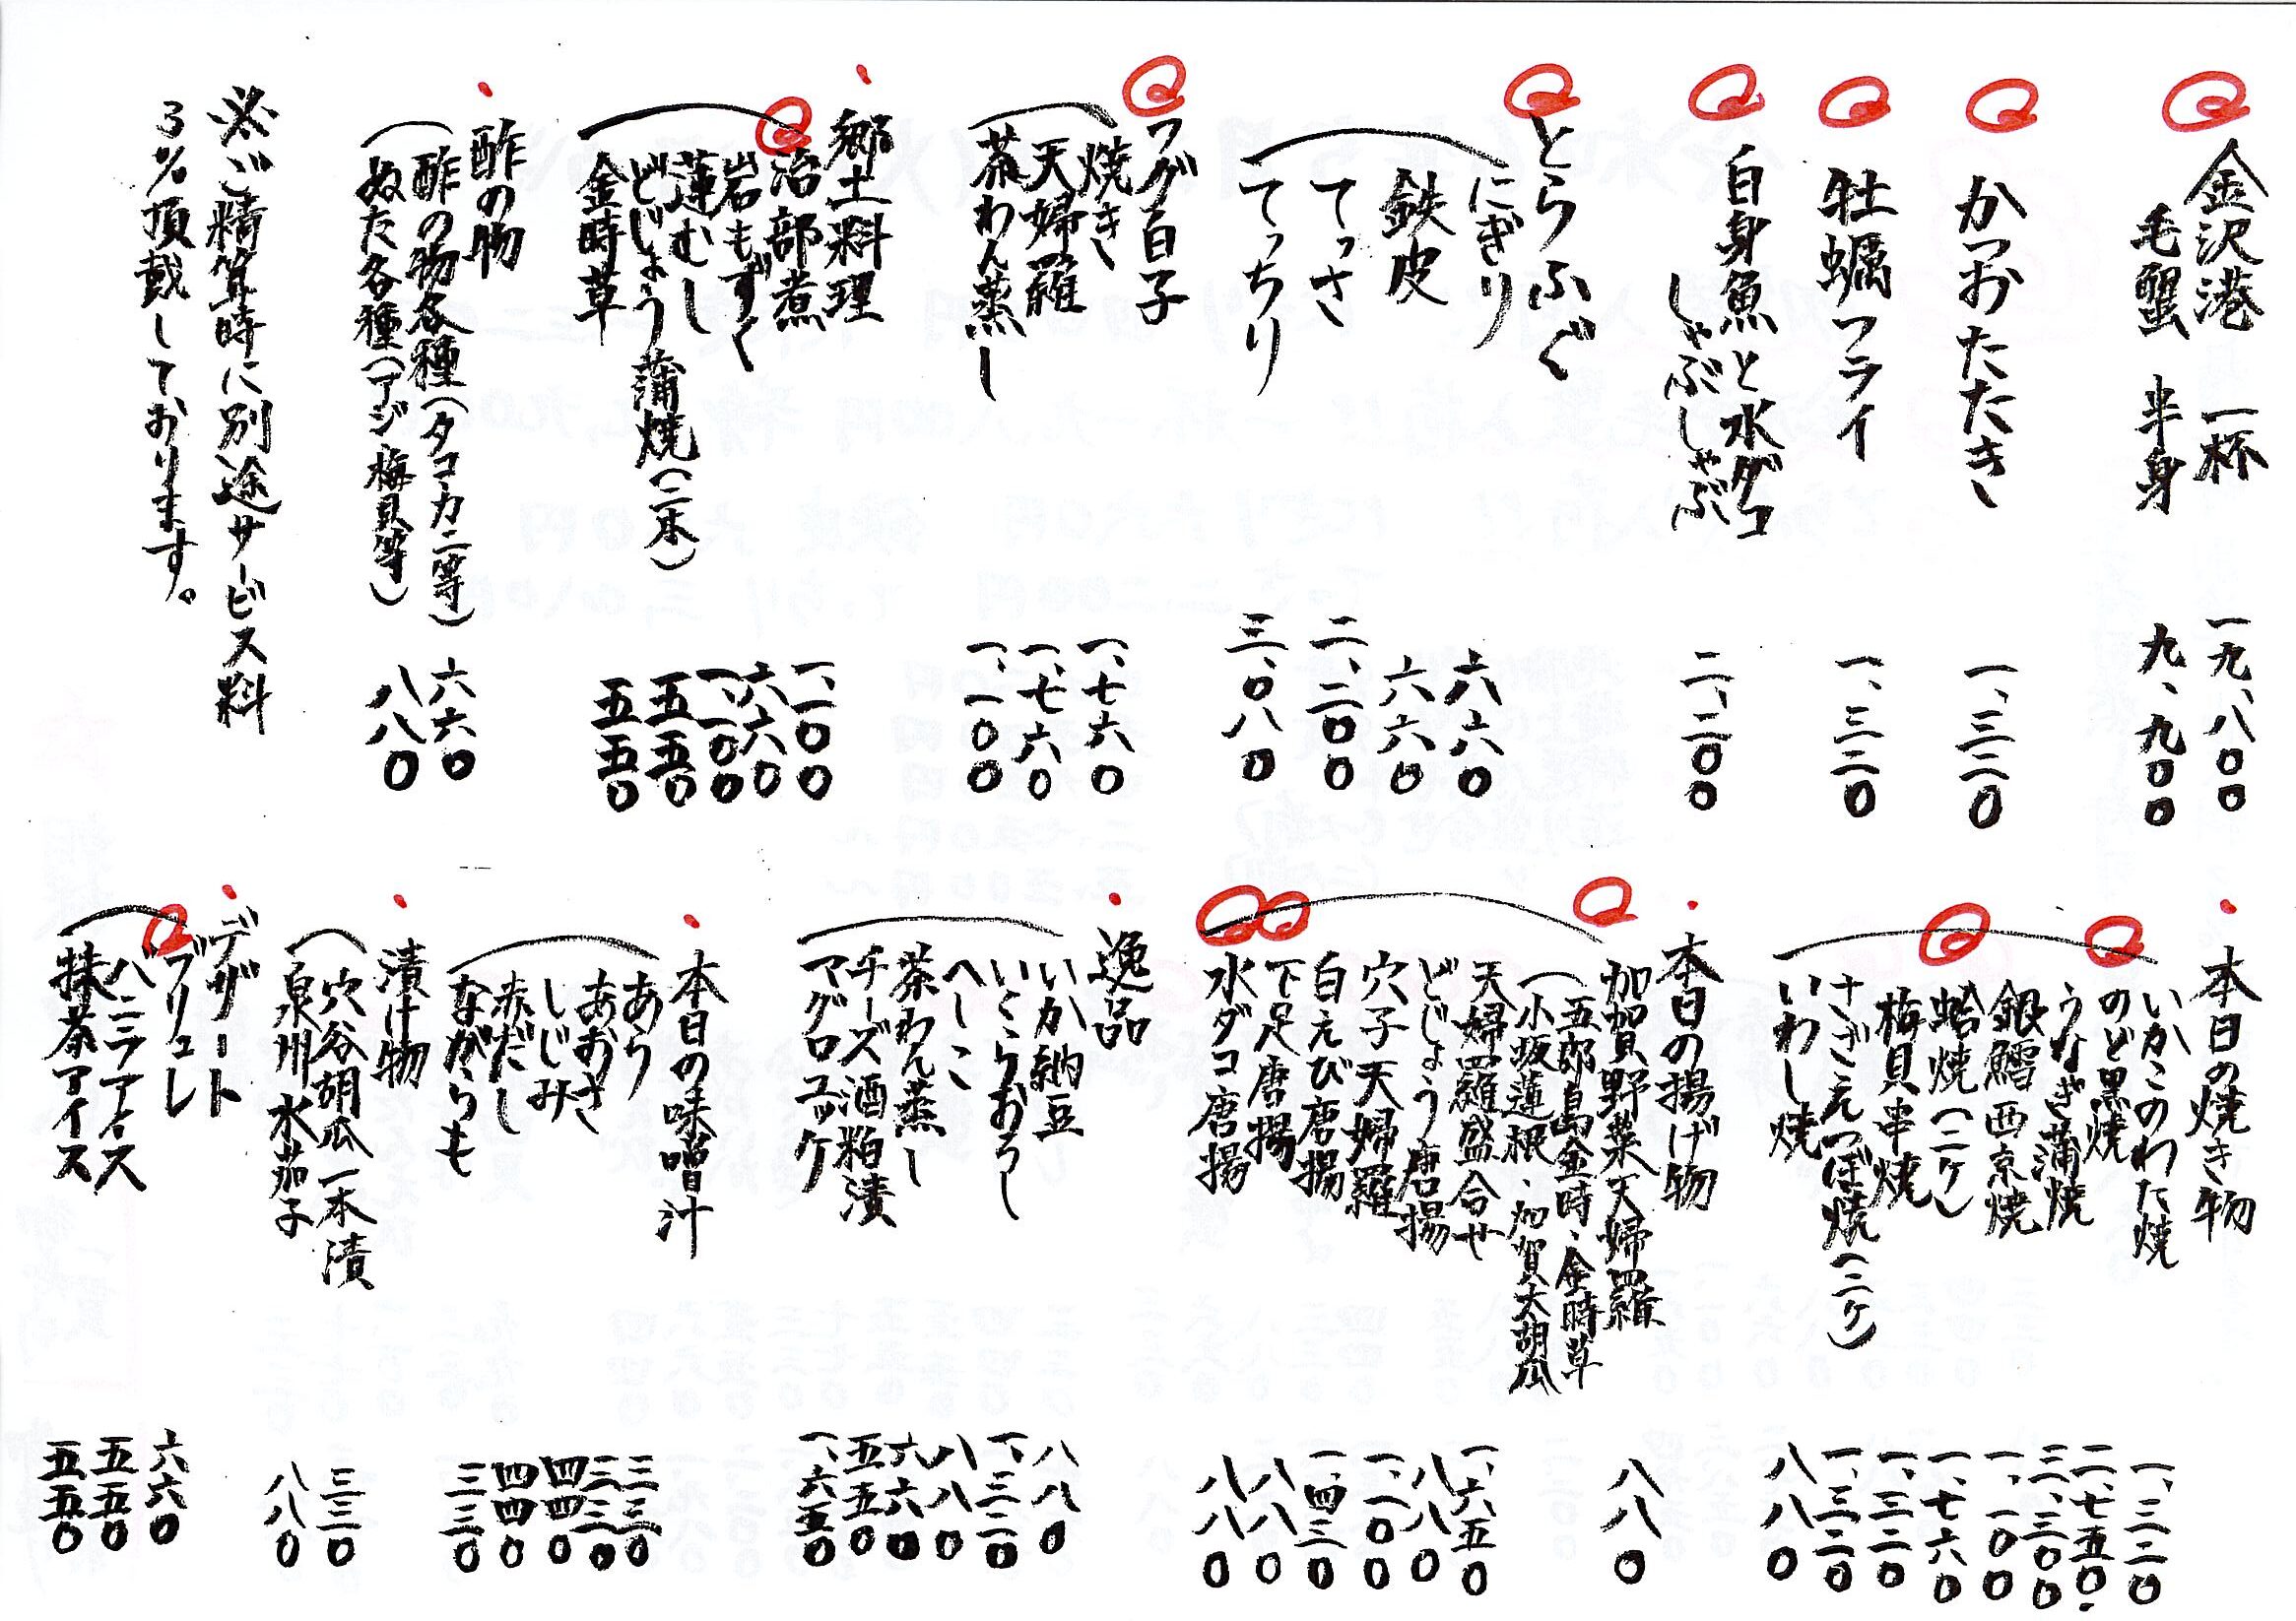 金沢港 一杯 一九、八〇〇
毛蟹 半身 九、九〇〇
かつおたたき 一、三二〇
牡蠣フライ 一、三二〇
白身魚と水ダコ
しゃぶしゃぶ 二、二〇〇
とらふぐ
にぎり 六六〇
鉄皮 六六〇
てっさ 二、二〇〇
てっちり 三、〇八〇
フグ白子
焼き 一、七六〇
天婦羅 一、七六〇
茶わん蒸し 一、一〇〇
郷土料理
治部煮 一、一〇〇
岩もずく 六六〇
蓮むし 一、一〇〇
どじょう蒲焼(二本) 五五〇
金時草 五五〇
酢の物
酢の物各種(タコ・カニ等) 六六〇
ぬた各種(アジ・梅貝等) 八八〇
※ご精算時に別途サービス料
3%頂戴しております。
本日の焼き物
いかこのわた焼 一、三二〇
のど黒焼 二、七五〇
うなぎ蒲焼 三、三〇〇
銀鱈西京焼 一、一〇〇
蛤焼(二ケ) 一、七六〇
梅貝串焼 一、三二〇
さざえつぼ焼(二ケ) 一、三二〇
いわし焼 八八〇
本日の揚げ物
加賀野菜天婦羅 八八〇
(五郎島金時、金時草
小坂蓮根、加賀太胡瓜
天婦羅盛合せ 一、六五〇
どじょう唐揚 八八〇
穴子天婦羅 一、一〇〇
白えび唐揚 一、四三〇
下足唐揚 八八〇
水ダコ唐揚 八八〇
逸品
いか納豆 八八〇
いくらおろし 一、三二〇
へしこ 八八〇
茶わん蒸し 六六〇
チーズ酒粕漬 五五〇
マグロユッケ 一、六五〇
本日の味噌汁
あら 三三〇
あおさ 三三〇
しじみ 四四〇
赤だし 四四〇
ながらも 三三〇
漬け物
穴谷胡瓜一本漬 三三〇
泉州水茄子 八八〇
デザート
ブリュレ 六六〇
バニラアイス 五五〇
抹茶アイス 五五〇